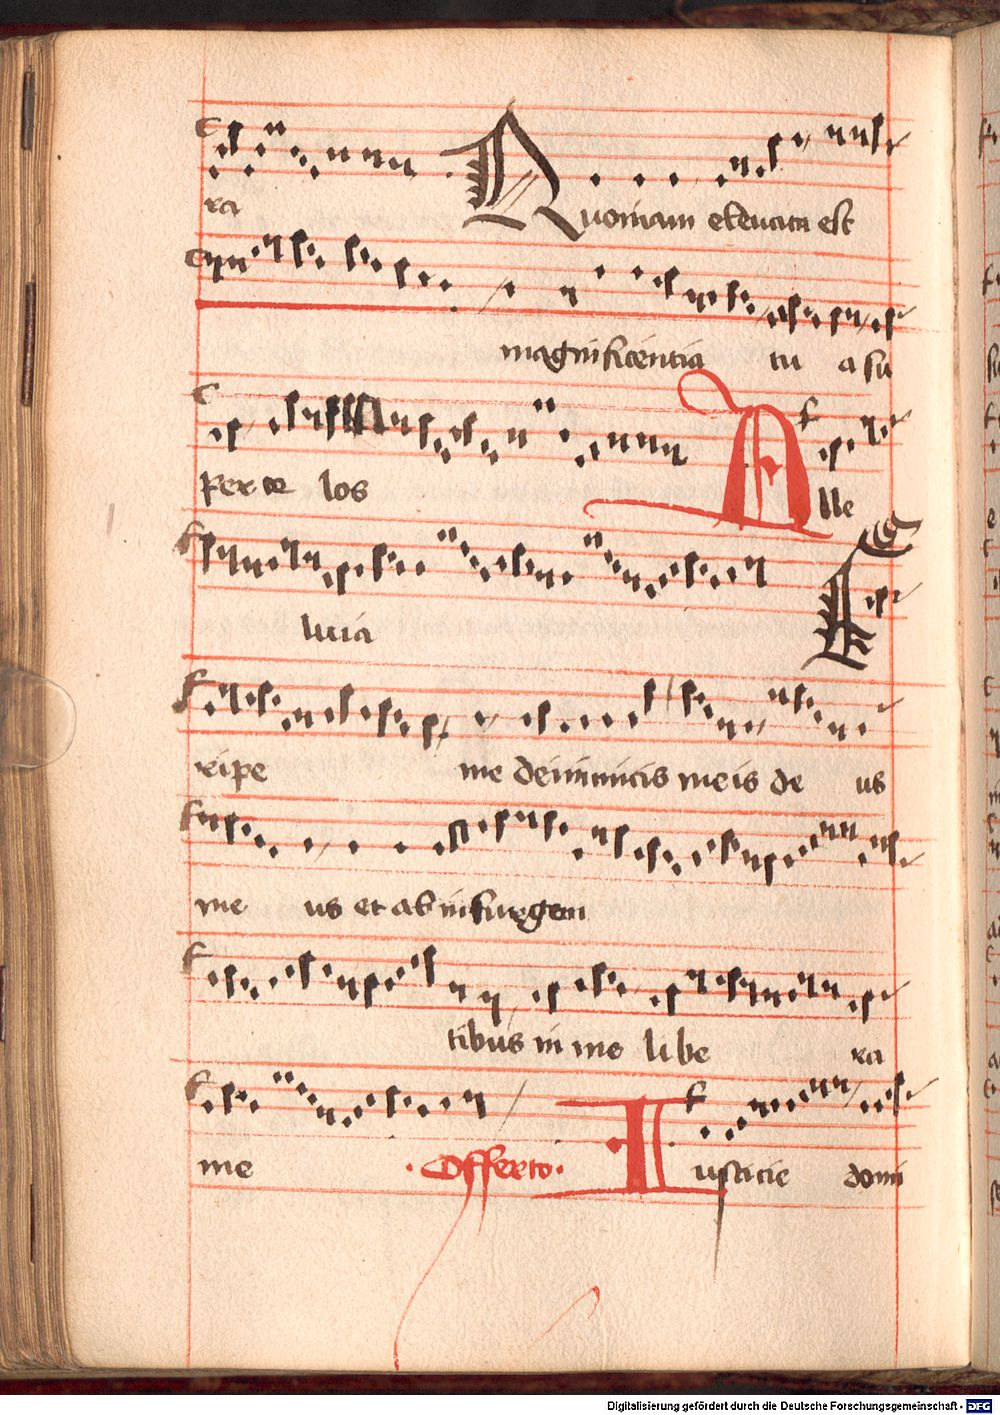 ra Quoniam eleuata est
magnificentia tu a su
per ce los Alle
luia E
ripe me deinimicis meis de us
me us et ab insurgen
tibus in me libe ra
me Offerto Iusticie domi
Digitalisierung gefördert durch die Deutsche Forschungsgemeinschaft - DFG